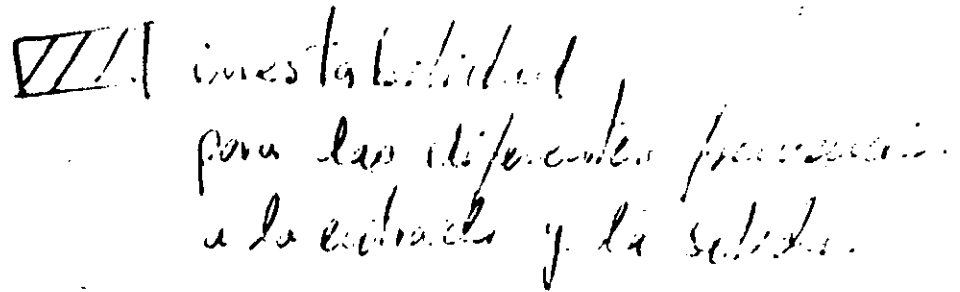 inestabilidad
para las diferentes
a la entrada y la salida.